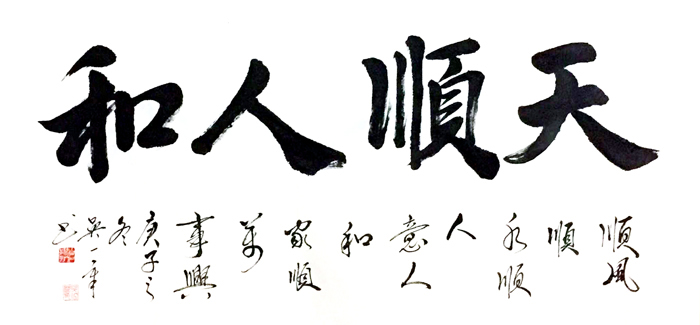 天順人和
順風
順
水順
人
意人
和
家順
萬
事興
庚子之
冬
书